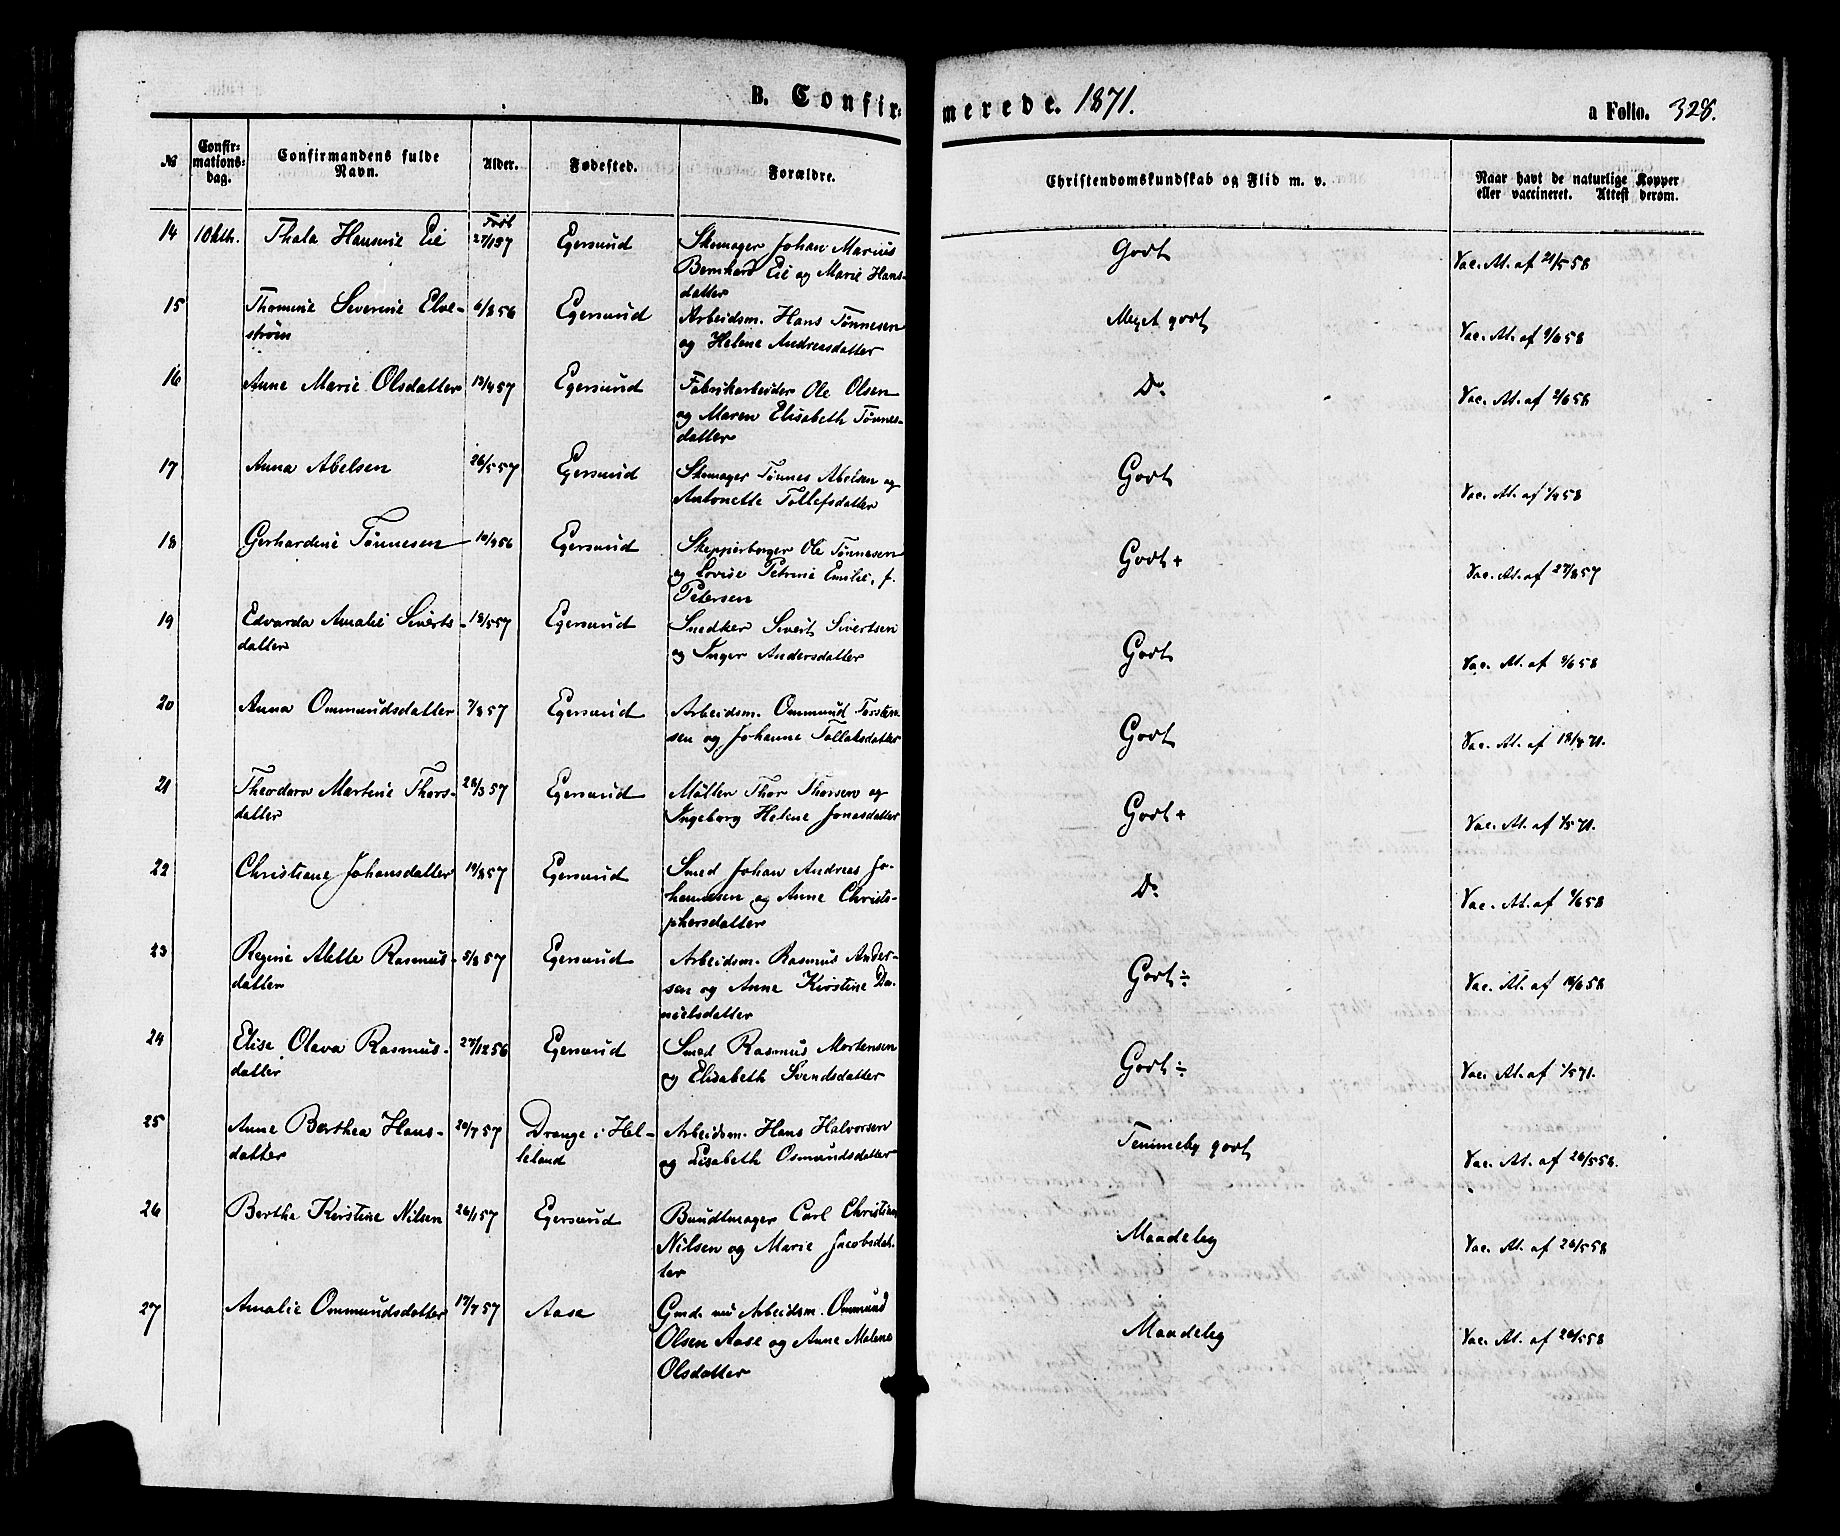 B. Confirmerede. 1871. a Folio. 328.
№ Confirmationsdag. Confirmandens fulde Navn. Alder. Fødested. Forældre. Christendomskundskab og Flid m. v. Naar havt de naturlige Kopper eller vaccineret. Attest derom.
14 Thala Hansine Eie Født 27/1 57 Egersund Skomager Johan Marius Godt Vac. At. af 21/5 58
Bernhard Eie og Marie Hans-
datter
15 Thomine Severine Elve- 6/8 56 Egersund Arbeidsm. Hans Tønnesen Meget godt Vac. At. af 9/6 58
strøm og Helene Andreasdatter
16 Anne Marie Olsdatter 13/4 57 Egersund Fabrikarbeider Ole Olsen Do Vac. At. af 2/6 58
og Maren Elisabeth Tønnes-
datter
17 Anna Abelsen 26/5 57 Egersund Skomager Tønnes Abelsen og Godt Vac. At. af 58
Antonette Tollefsdatter
18 Gerhardine Tønnesen 10/9 56 Egersund Skipperborger Ole Tønnesen Godt + Vac. At. af 27/8 57
og Lovise Petrine Emilie, f.
Petersen
19 Edvarda Amalie Siverts- 13/5 57 Egersund Snedker Sivert Sivertsen Godt Vac. At. af 9/6 58
datter og Inger Andersdatter
20 Anna Ommundsdatter 7/8 57 Egersund Arbeidsm. Ommund Torsten- Godt Vac. At. af 18/4 71.
sen og Johanne Tollaksdatter
21 Theodora Martine Thors- 28/3 57 Egersund Møller Thor Thorsen og Godt + Vac. At. af 1/5 71.
datter Ingeborg Helene Jonasdatter
22 Christiane Johansdatter 19/8 57 Egersund Smed Johan Andreas Jo- Do Vac. At. af 1/6 58
hannesen og Anne Christo-
phersdatter
23 Regine Alette Rasmus- 5/8 57 Egersund Arbeidsm. Rasmus Ander- Godt ÷ Vac. At. af 10/6 58
datter sen og Anne Kirstine Da-
nielsdatter
24 Elise Olava Rasmus- 27/12 56 Egersund Smed Rasmus Mortensen Godt ÷ Vac. At. af 1/5 71.
datter og Elisabeth Svendsdatter
25 Anne Berthea Hans- 20/7 57 Drange i Hel- Arbeidsm. Hans Halvorsen Temmelig godt Vac. At. af 26/5 58.
datter leland og Elisabeth Osmundsdatter
26 Berthe Kirstine Nilsen 26/1 57 Egersund Bundtmager Carl Christian Maadelig Vac. At. af 26/5 58
Nilsen og Marie Jacobsdat-
ter
27 Amalie Ommundsdatter 17/7 57 Aase Gmd. nu Arbeidsm. Ommund Maadelig Vac. At. af 26/5 58
Olsen Aase og Anne Malene
Olsdatter